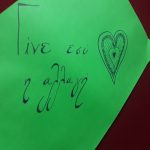 Γίνε εσύ
η αλλαγή